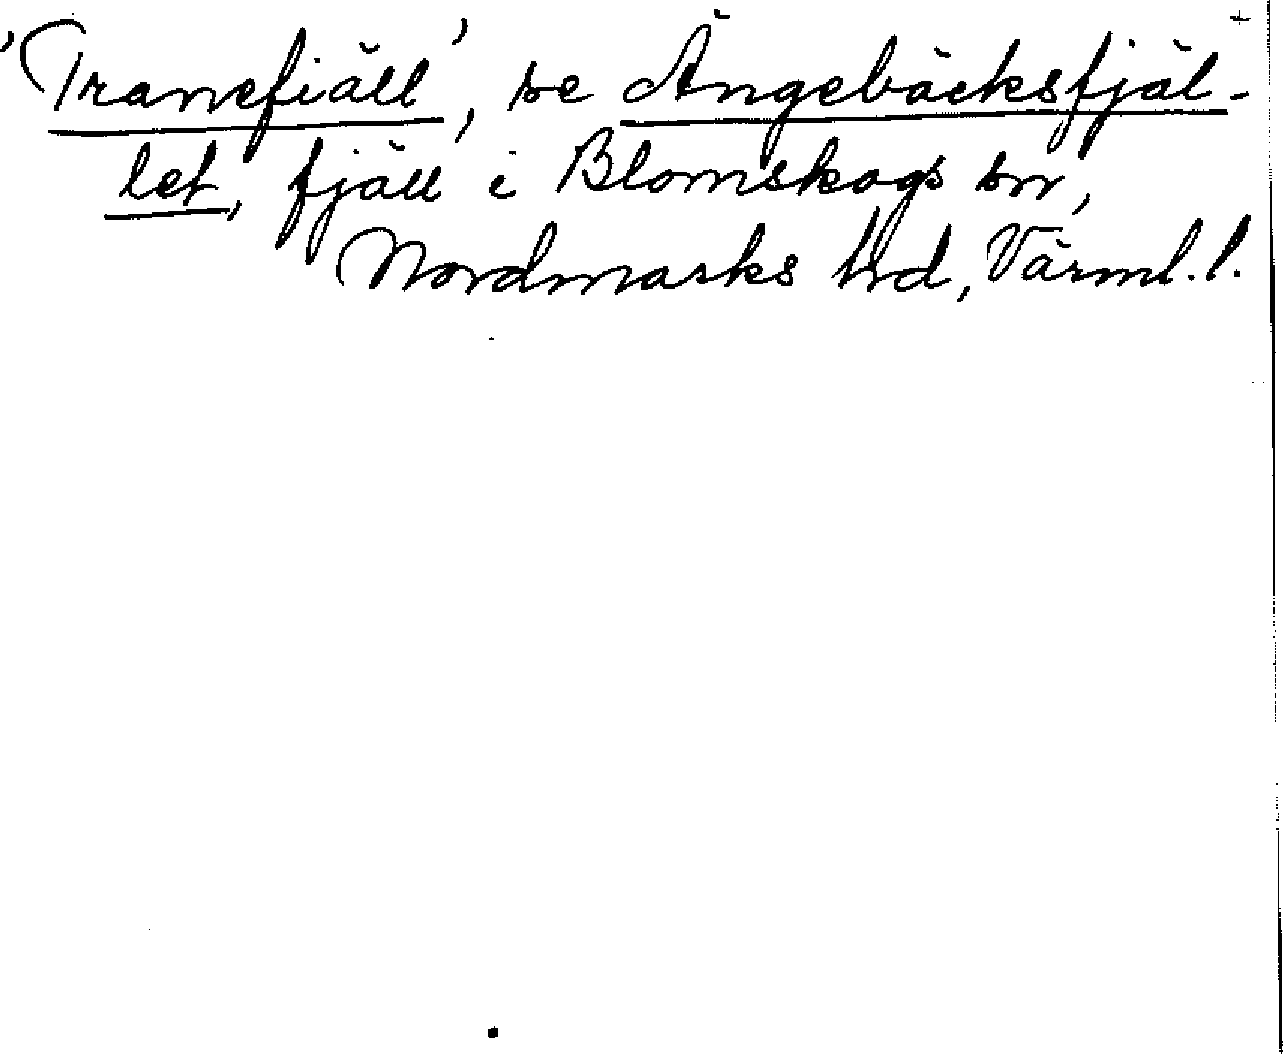 'Tranefiäll', se Ängebäcksfjäl- +
let, fjäll i Blomskogs sn,
Nordmarks hd, Värml. l.